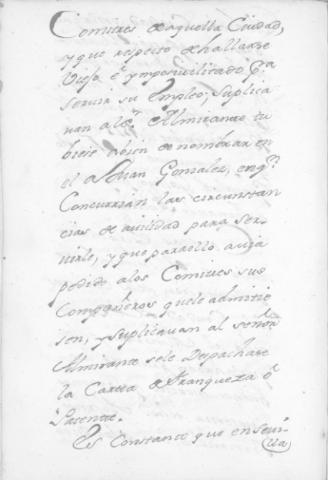 Comitres de aquella Ciudad,
y que respecto de hallarse
Viejo è ymposivilitado pª
servir su Empleo; suplica
van al sr. Almirante tu
biese abien de nombrar en
el a Juan Gonzalez, en qn.
Concurrian las circunstan
cias de avilidad para ser
virle, y que para ello avia
pedido alos Comitres sus
Compañeros quele admitie
sen, y suplicavan al señor
Almirante sele Despachase
la Carta de franqueza ô
Patente.
Es Constante que en Sevi
lla